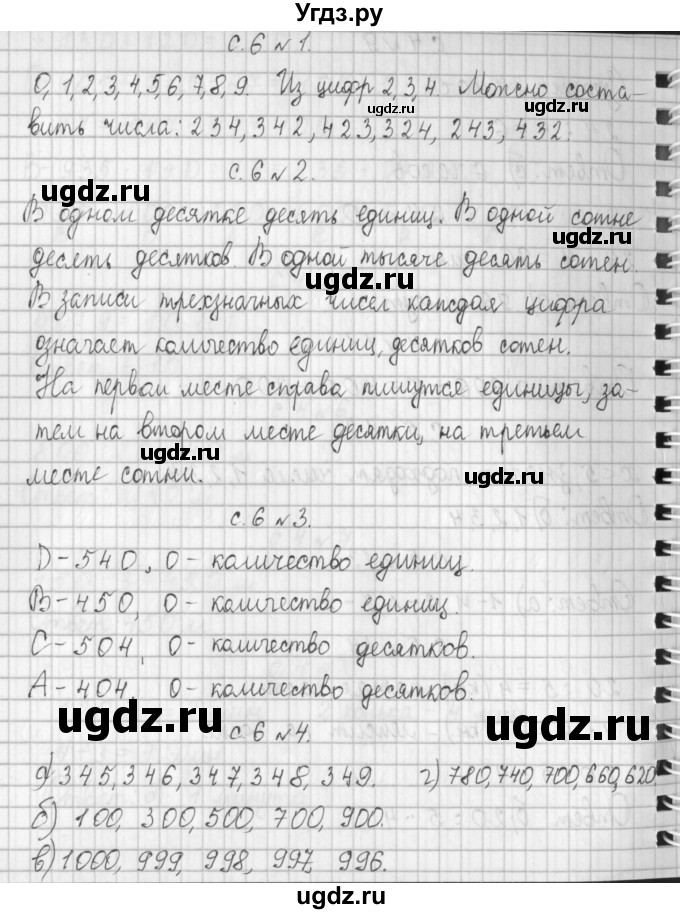 Угдз.ру
с. 6 № 1.
0, 1, 2, 3, 4, 5, 6, 7, 8, 9. Из цифр 2, 3, 4. Можно соста-
ugdz.ru
ugdz.ru
вить числа: 234, 342, 423, 324, 243, 432.
с. 6 № 2.
ugdz.ru
ugdz.ru
В одном десятке десять единиц. В одной сотне
ugdz.ru
десять десятков. В одной тысяче десять сотен.
ugdz.ru
В записи трехзначных чисел каждая цифра
означает количество единиц, десятков сотен.
ugdz.ru
На первом месте справа пишутся единицы, за-
тем на втором месте десятки, на третьем
ugdz.ru
ugdz.ru
месте сотни.
с. 6 № 3.
D - 540, 0 - количество единиц.
ugdz.ru
B - 450, 0 - количество единиц.
ugdz.ru
C - 504, 0 - количество десятков.
A - 404, 0 - количество десятков.
ugdz.ru
ugdz.ru
с. 6 № 4.
а) 345, 346, 347, 348, 349. г) 780, 740, 700, 660, 620.
ugdz.ru
б) 100, 300, 500, 700, 900.
ugdz.ru
в) 1000, 999, 998, 997, 996.
ugdz.ru